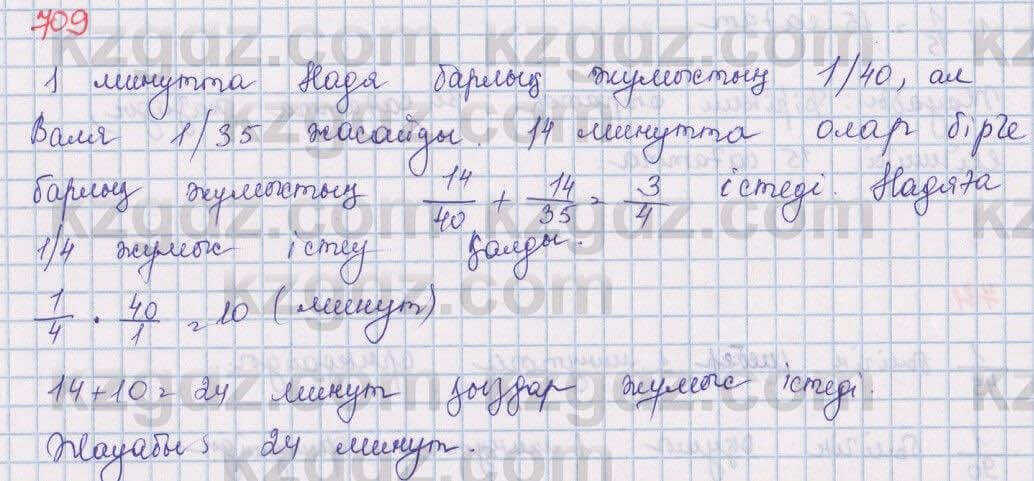 709
1 минутта Надя барлық жұмыстың 1/40, ал
Валя 1/35 жасайды. 14 минутта олар бірге
барлық жұмыстың 14/40 + 14/35 = 3/4 істеді. Надяға
1/4 жұмыс істеу қалды.
1/4 · 40/1 = 10 (минут)
14+10=24 минут қыздар жұмыс істеді.
Жауабы: 24 минут.